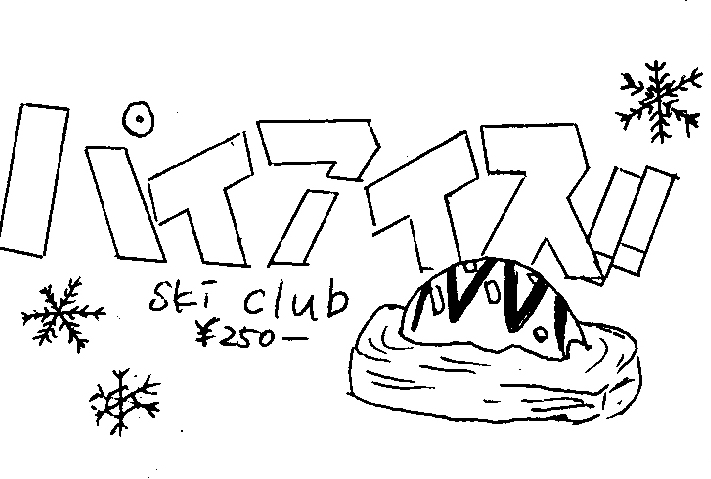 パイアイス!!
ski club
¥250—